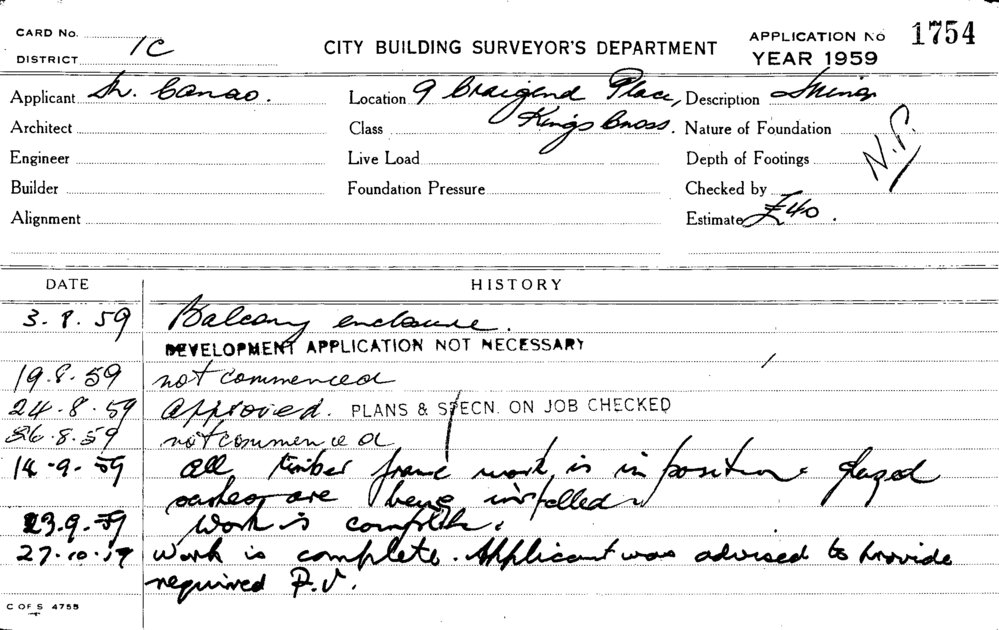 CARD No.
DISTRICT 1C
CITY BUILDING SURVEYOR'S DEPARTMENT
APPLICATION No 1754
YEAR 1959
Applicant Canao.
Location 9 Craigend Place, Kings Cross.
Description Minor
Architect
Class
Nature of Foundation
N.P.
Engineer
Live Load
Depth of Footings
Builder
Foundation Pressure
Checked by
Alignment
Estimate £40.
DATE HISTORY
3.8.59 Balcony enclosure.
DEVELOPMENT APPLICATION NOT NECESSARY
19.8.59 not commenced
24.8.59 Approved. PLANS & SPECN. ON JOB CHECKED
26.8.59 not commenced
14.9.59 all timber frame work is in position & glazed
sashes are being installed
23.9.59 Work is complete.
27.10.59 Work is complete. Applicant was advised to provide
required P.V.
C OF S 4755